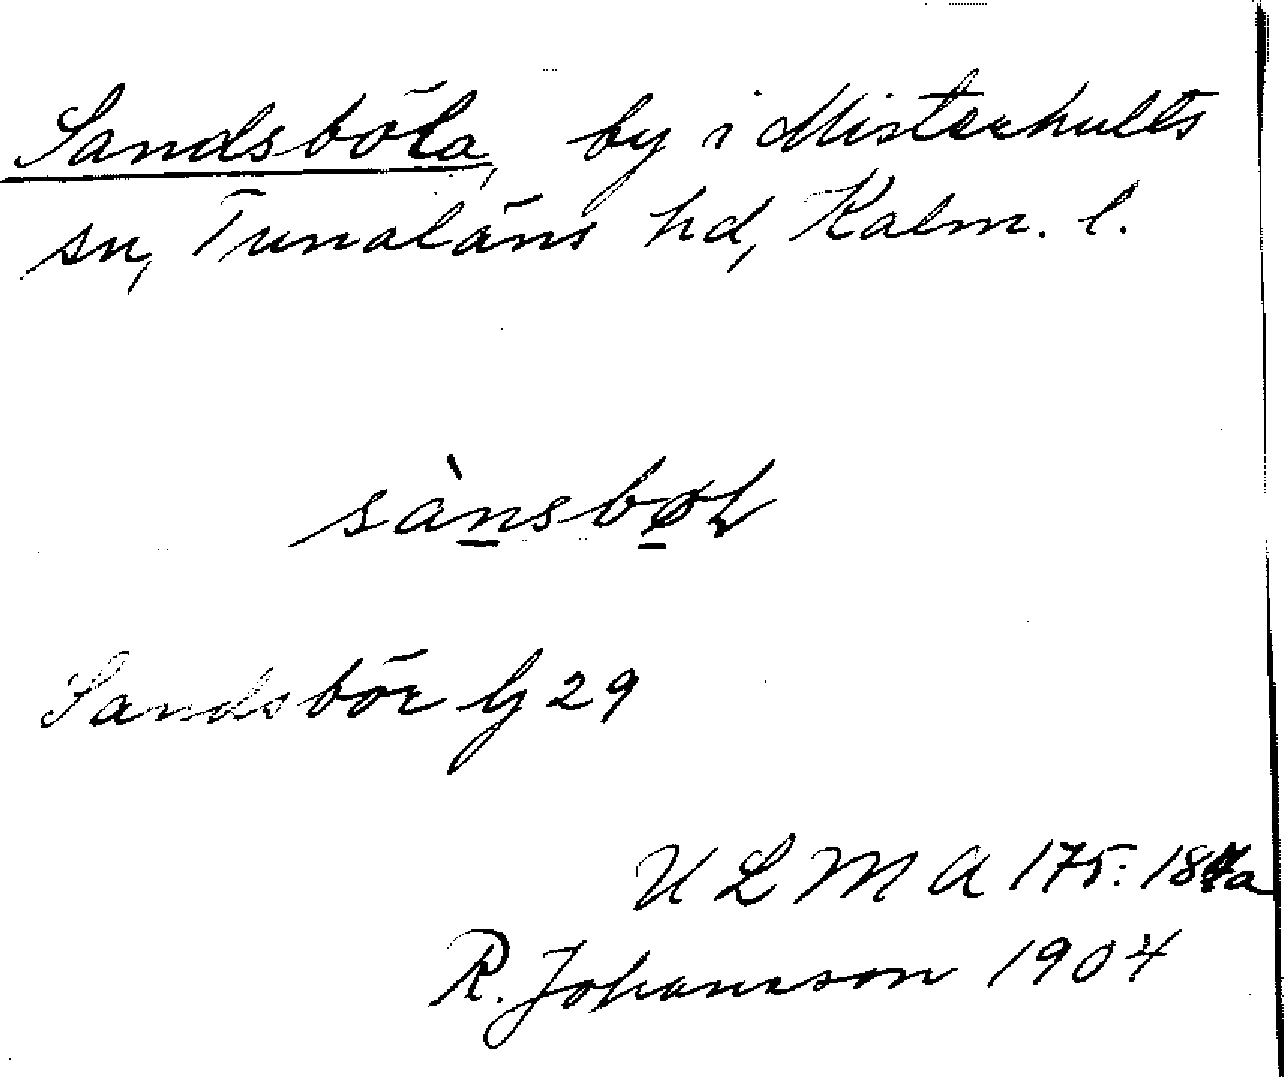 Sandsböla, by i Misterhults
sn, Tunaläns hd, Kalm. l.
sànsbøL
Sandsbör G 29
U L M A 175:
R. Johansson 1904